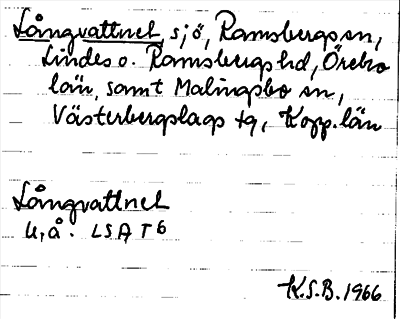 Långvattnet sjö, Ramsbergs sn,
Lindes o. Ramsbergs hd, Örebro
län, samt Malingsbo sn,
Västerbergslags tg, Kopp. län
Långvattnet
u, å. LSA T6
K.S.B. 1966